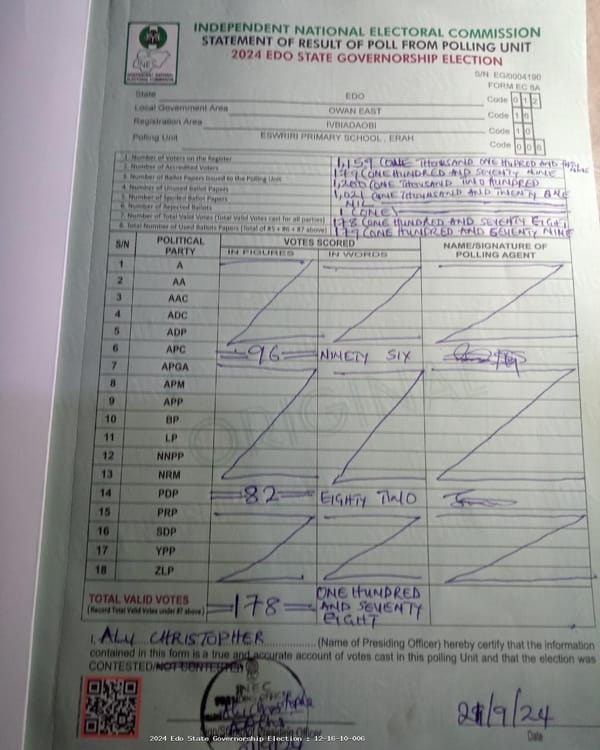 INDEPENDENT NATIONAL ELECTORAL COMMISSION
STATEMENT OF RESULT OF POLL FROM POLLING UNIT
2024 EDO STATE GOVERNORSHIP ELECTION
S/N EG/0004190
FORM EC 8A
State EDO Code 012
Local Government Area OWAN EAST Code 16
Registration Area IVBIADAOBI Code 10
Polling Unit ESWRIRI PRIMARY SCHOOL, ERAH Code 006
1. Number of Voters on the Register 1,159 (ONE THOUSAND ONE HUNDRED AND
2. Number of Accredited Voters 179 (ONE HUNDRED AND SEVENTY NINE
3. Number of Ballot Papers Issued to the Polling Unit 1,200 (ONE THOUSAND TWO HUNDRED
4. Number of Unused Ballot Papers 1,021 (ONE THOUSAND AND TWENTY ONE
5. Number of Spoiled Ballot Papers NIL
6. Number of Rejected Ballots 1 (ONE)
7. Number of Total Valid Votes (Total Valid Votes cast for all parties) 178 (ONE HUNDRED AND SEVENTY EIGHT
8. Total Number of Used Ballots Papers (Total of #5 + #6 + #7 above) 179 (ONE HUNDRED AND SEVENTY NINE
S/N POLITICAL PARTY VOTES SCORED NAME/SIGNATURE OF POLLING AGENT
IN FIGURES IN WORDS
1 A
2 AA
3 AAC
4 ADC
5 ADP
6 APC =96= NINETY SIX
7 APGA
8 APM
9 APP
10 BP
11 LP
12 NNPP
13 NRM
14 PDP =82= EIGHTY TWO
15 PRP
16 SDP
17 YPP
18 ZLP
ORIGINAL
TOTAL VALID VOTES =178= ONE HUNDRED
(Record Total Valid Votes under #7 above) AND SEVENTY
EIGHT
I, ALU CHRISTOPHER (Name of Presiding Officer) hereby certify that the information
contained in this form is a true and accurate account of votes cast in this polling Unit and that the election was
CONTESTED/NOT CONTESTED
INEC
21/9/24
Date
2024 Edo State Governorship Election : 12-16-10-006